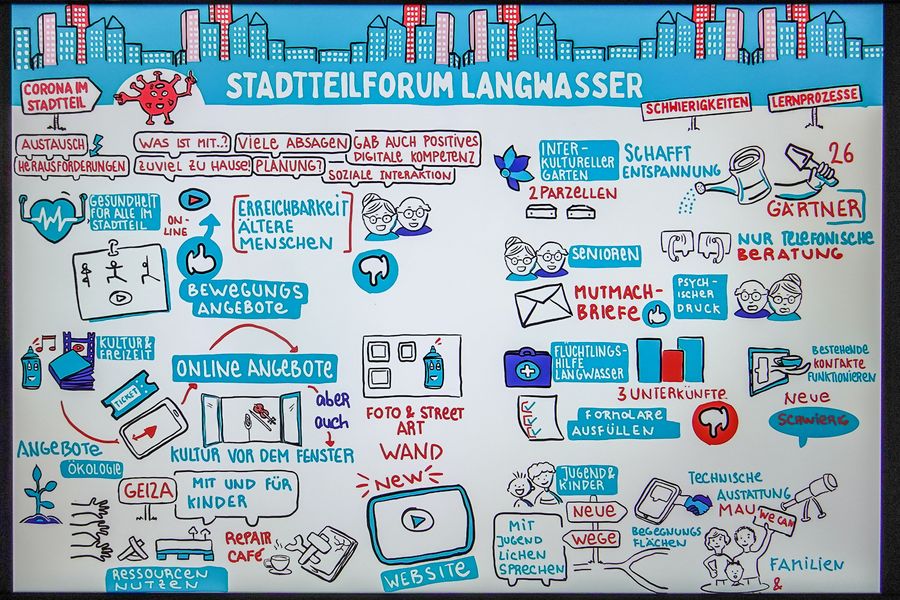 STADTTEILFORUM LANGWASSER
CORONA IM
STADTTEIL
SCHWIERIGKEITEN
LERNPROZESSE
AUSTAUSCH
HERAUSFÖRDERUNGEN
WAS IST MIT..?
ZUVIEL ZU HAUSE!
VIELE ABSAGEN
PLANUNG?
GAB AUCH POSITIVES
DIGITALE KOMPETENZ
SOZIALE INTERAKTION
GESUNDHEIT
FÜR ALLE IM
STADTTEIL
ON-
LINE
ERREICHBARKEIT
ÄLTERE
MENSCHEN
BEWEGUNGS
ANGEBOTE
KULTUR &
FREIZEIT
TICKET
ONLINE ANGEBOTE
aber
auch
KULTUR VOR DEM FENSTER
FOTO & STREET
ART
WAND
ANGEBOTE
ÖKOLOGIE
GEIZA
MIT UND FÜR
KINDER
REPAIR
CAFÉ
RESSOURCEN
NUTZEN
NEW
WEBSITE
INTER-
KULTURELLER
GARTEN
SCHAFFT
ENTSPANNUNG
2 PARZELLEN
26
GÄRTNER
SENIOREN
NUR TELEFONISCHE
BERATUNG
MUTMACH-
BRIEFE
PSYCH-
ISCHER
DRUCK
FLÜCHTLINGS-
HILFE
LANGWASSER
3 UNTERKÜNFTE
FORMULARE
AUSFÜLLEN
BESTEHENDE
KONTAKTE
FUNKTIONIEREN
NEUE
SCHWIERIG
JUGEND &
KINDER
NEUE
WEGE
MIT
JUGEND
LICHEN
SPRECHEN
TECHNISCHE
AUSTATTUNG
MAU
BEGEGNUNGS
FLÄCHEN
WE CAN
FAMILIEN
&